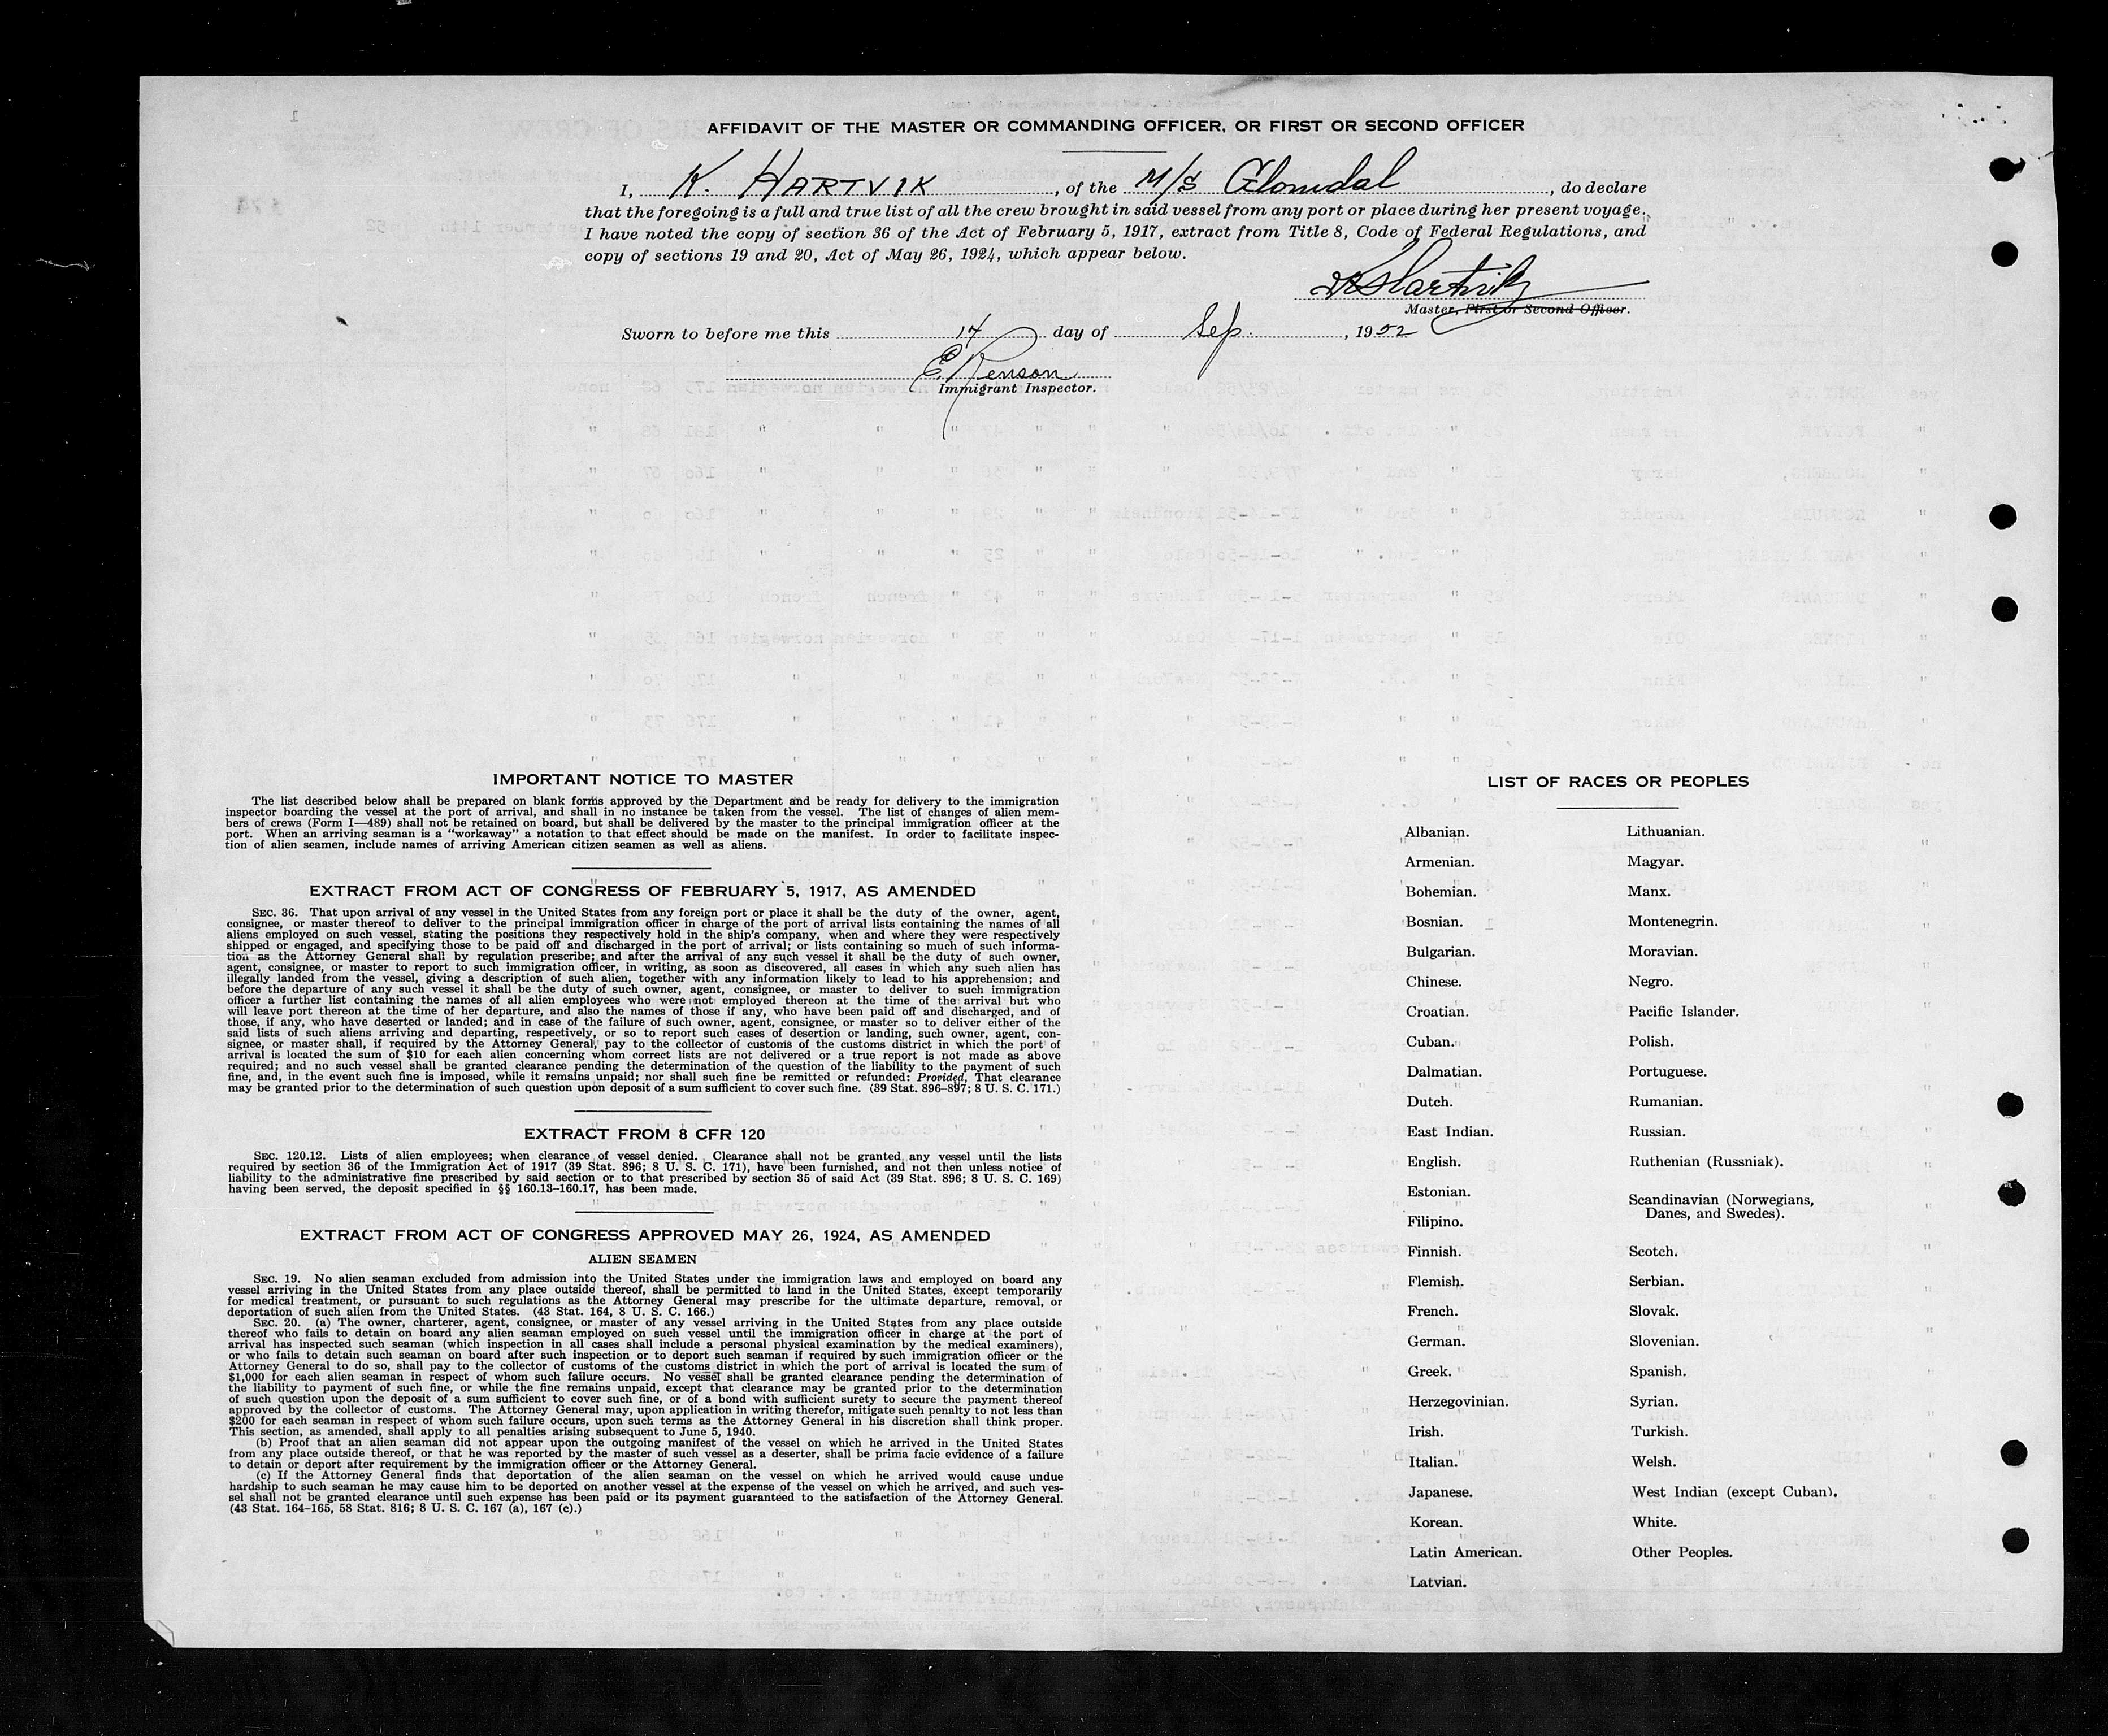 AFFIDAVIT OF THE MASTER OR COMMANDING OFFICER, OR FIRST OR SECOND OFFICER
I, K. HARTVIK, of the M/S Glomdal, do declare
that the foregoing is a full and true list of all the crew brought in said vessel from any port or place during her present voyage.
I have noted the copy of section 36 of the Act of February 5, 1917, extract from Title 8, Code of Federal Regulations, and
copy of sections 19 and 20, Act of May 26, 1924, which appear below.
K Hartvik
Master, First or Second Officer.
Sworn to before me this 14 day of Sep., 1952
Immigrant Inspector.
IMPORTANT NOTICE TO MASTER
The list described below shall be prepared on blank forms approved by the Department and be ready for delivery to the immigration
inspector boarding the vessel at the port of arrival, and shall in no instance be taken from the vessel. The list of changes of alien mem-
bers of crews (Form I—489) shall not be retained on board, but shall be delivered by the master to the principal immigration officer at the
port. When an arriving seaman is a “workaway” a notation to that effect should be made on the manifest. In order to facilitate inspec-
tion of alien seamen, include names of arriving American citizen seamen as well as aliens.
EXTRACT FROM ACT OF CONGRESS OF FEBRUARY 5, 1917, AS AMENDED
SEC. 36. That upon arrival of any vessel in the United States from any foreign port or place it shall be the duty of the owner, agent,
consignee, or master thereof to deliver to the principal immigration officer in charge of the port of arrival lists containing the names of all
aliens employed on such vessel, stating the positions they respectively hold in the ship's company, when and where they were respectively
shipped or engaged, and specifying those to be paid off and discharged in the port of arrival; or lists containing so much of such informa-
tion as the Attorney General shall by regulation prescribe; and after the arrival of any such vessel it shall be the duty of such owner,
agent, consignee, or master to report to such immigration officer, in writing, as soon as discovered, all cases in which any such alien has
illegally landed from the vessel, giving a description of such alien, together with any information likely to lead to his apprehension; and
before the departure of any such vessel it shall be the duty of such owner, agent, consignee, or master to deliver to such immigration
officer a further list containing the names of all alien employees who were not employed thereon at the time of the arrival but who
will leave port thereon at the time of her departure, and also the names of those if any, who have been paid off and discharged, and of
those, if any, who have deserted or landed; and in case of the failure of such owner, agent, consignee, or master so to deliver either of the
said lists of such aliens arriving and departing, respectively, or so to report such cases of desertion or landing, such owner, agent, con-
signee, or master shall, if required by the Attorney General, pay to the collector of customs of the customs district in which the port of
arrival is located the sum of $10 for each alien concerning whom correct lists are not delivered or a true report is not made as above
required; and no such vessel shall be granted clearance pending the determination of the question of the liability to the payment of such
fine, and, in the event such fine is imposed, while it remains unpaid; nor shall such fine be remitted or refunded: Provided, That clearance
may be granted prior to the determination of such question upon deposit of a sum sufficient to cover such fine. (39 Stat. 896–897; 8 U. S. C. 171.)
EXTRACT FROM 8 CFR 120
SEC. 120.12. Lists of alien employees; when clearance of vessel denied. Clearance shall not be granted any vessel until the lists
required by section 36 of the Immigration Act of 1917 (39 Stat. 896; 8 U. S. C. 171), have been furnished, and not then unless notice of
liability to the administrative fine prescribed by said section or to that prescribed by section 35 of said Act (39 Stat. 896; 8 U. S. C. 169)
having been served, the deposit specified in §§ 160.13–160.17, has been made.
EXTRACT FROM ACT OF CONGRESS APPROVED MAY 26, 1924, AS AMENDED
ALIEN SEAMEN
SEC. 19. No alien seaman excluded from admission into the United States under the immigration laws and employed on board any
vessel arriving in the United States from any place outside thereof, shall be permitted to land in the United States, except temporarily
for medical treatment, or pursuant to such regulations as the Attorney General may prescribe for the ultimate departure, removal, or
deportation of such alien from the United States. (43 Stat. 164, 8 U. S. C. 166.)
SEC. 20. (a) The owner, charterer, agent, consignee, or master of any vessel arriving in the United States from any place outside
thereof who fails to detain on board any alien seaman employed on such vessel until the immigration officer in charge at the port of
arrival has inspected such seaman (which inspection in all cases shall include a personal physical examination by the medical examiners),
or who fails to detain such seaman on board after such inspection or to deport such seaman if required by such immigration officer or the
Attorney General to do so, shall pay to the collector of customs of the customs district in which the port of arrival is located the sum of
$1,000 for each alien seaman in respect of whom such failure occurs. No vessel shall be granted clearance pending the determination of
the liability to payment of such fine, or while the fine remains unpaid, except that clearance may be granted prior to the determination
of such question upon the deposit of a sum sufficient to cover such fine, or of a bond with sufficient surety to secure the payment thereof
approved by the collector of customs. The Attorney General may, upon application in writing therefor, mitigate such penalty to not less than
$200 for each seaman in respect of whom such failure occurs, upon such terms as the Attorney General in his discretion shall think proper.
This section, as amended, shall apply to all penalties arising subsequent to June 5, 1940.
(b) Proof that an alien seaman did not appear upon the outgoing manifest of the vessel on which he arrived in the United States
from any place outside thereof, or that he was reported by the master of such vessel as a deserter, shall be prima facie evidence of a failure
to detain or deport after requirement by the immigration officer or the Attorney General.
(c) If the Attorney General finds that deportation of the alien seaman on the vessel on which he arrived would cause undue
hardship to such seaman he may cause him to be deported on another vessel at the expense of the vessel on which he arrived, and such ves-
sel shall not be granted clearance until such expense has been paid or its payment guaranteed to the satisfaction of the Attorney General.
(43 Stat. 164–165, 58 Stat. 816; 8 U. S. C. 167 (a), 167 (c).)
LIST OF RACES OR PEOPLES
Albanian.
Armenian.
Bohemian.
Bosnian.
Bulgarian.
Chinese.
Croatian.
Cuban.
Dalmatian.
Dutch.
East Indian.
English.
Estonian.
Filipino.
Finnish.
Flemish.
French.
German.
Greek.
Herzegovinian.
Irish.
Italian.
Japanese.
Korean.
Latin American.
Latvian.
Lithuanian.
Magyar.
Manx.
Montenegrin.
Moravian.
Negro.
Pacific Islander.
Polish.
Portuguese.
Rumanian.
Russian.
Ruthenian (Russniak).
Scandinavian (Norwegians,
Danes, and Swedes).
Scotch.
Serbian.
Slovak.
Slovenian.
Spanish.
Syrian.
Turkish.
Welsh.
West Indian (except Cuban).
White.
Other Peoples.